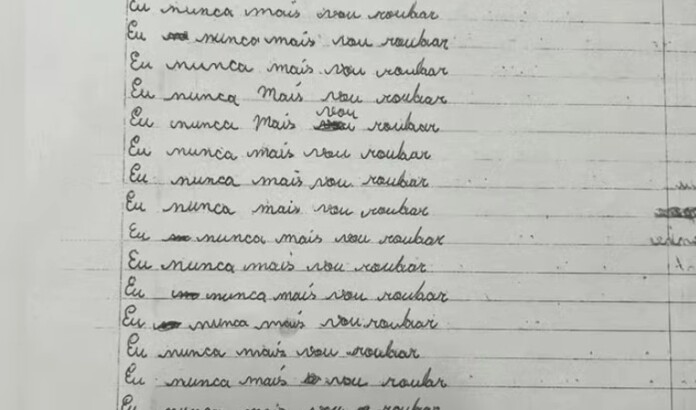 Eu nunca mais vou roubar
Eu nunca mais vou roubar
Eu nunca mais vou roubar
Eu nunca Mais vou roubar
Eu nunca Mais vou roubar
Eu nunca mais vou roubar
Eu nunca mais vou roubar
Eu nunca mais vou roubar
Eu nunca mais vou roubar
Eu nunca mais vou roubar
Eu nunca mais vou roubar
Eu nunca mais vou roubar
Eu nunca mais vou roubar
Eu nunca mais vou roubar
Eu nunca mais vou roubar